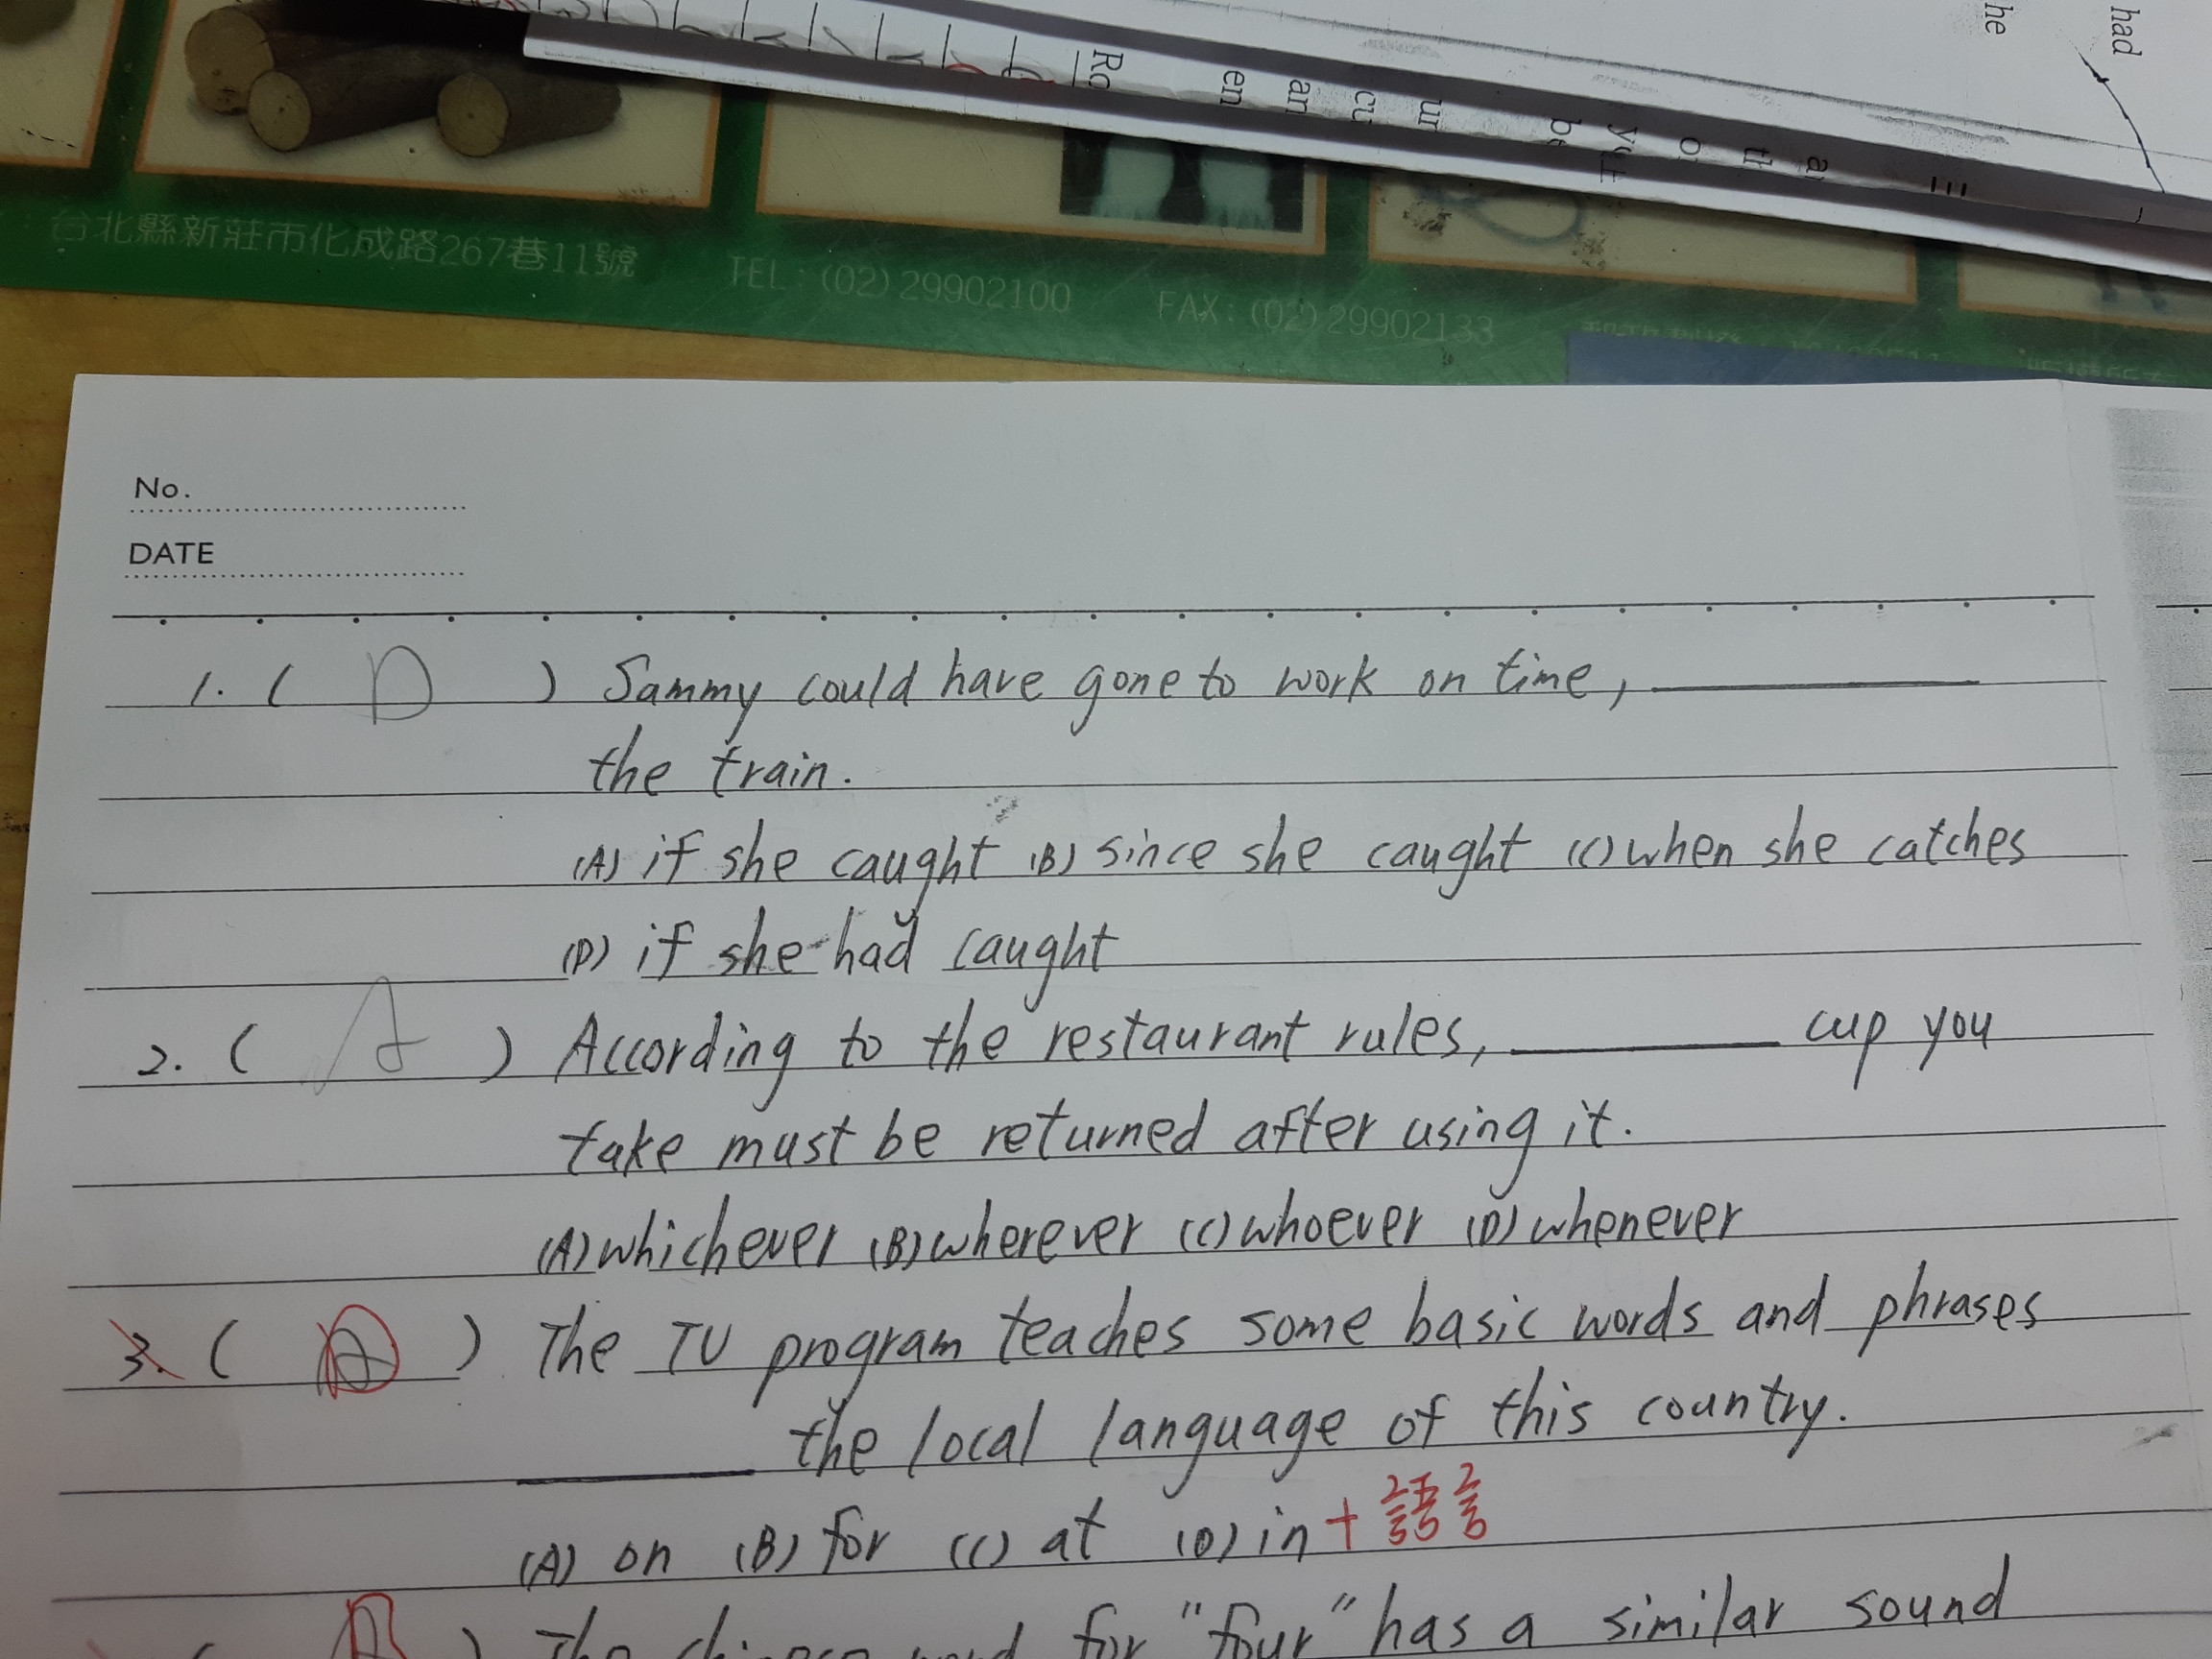 had
he
Ro
en
an
cu
ur
be
o
th
a
台北縣新莊市化成路267巷11號
TEL:(02)29902100 FAX:(02)29902133
No.
DATE
1. ( D ) Sammy could have gone to work on time, ______
the train.
(A) if she caught (B) since she caught (C) when she catches
(D) if she had caught
2. ( A ) According to the restaurant rules, ______ cup you
take must be returned after using it.
(A) whichever (B) wherever (C) whoever (D) whenever
3. ( D ) The TV program teaches some basic words and phrases
______ the local language of this country.
(A) on (B) for (C) at (D) in + 語言
( ) The chinese word for "four" has a similar sound